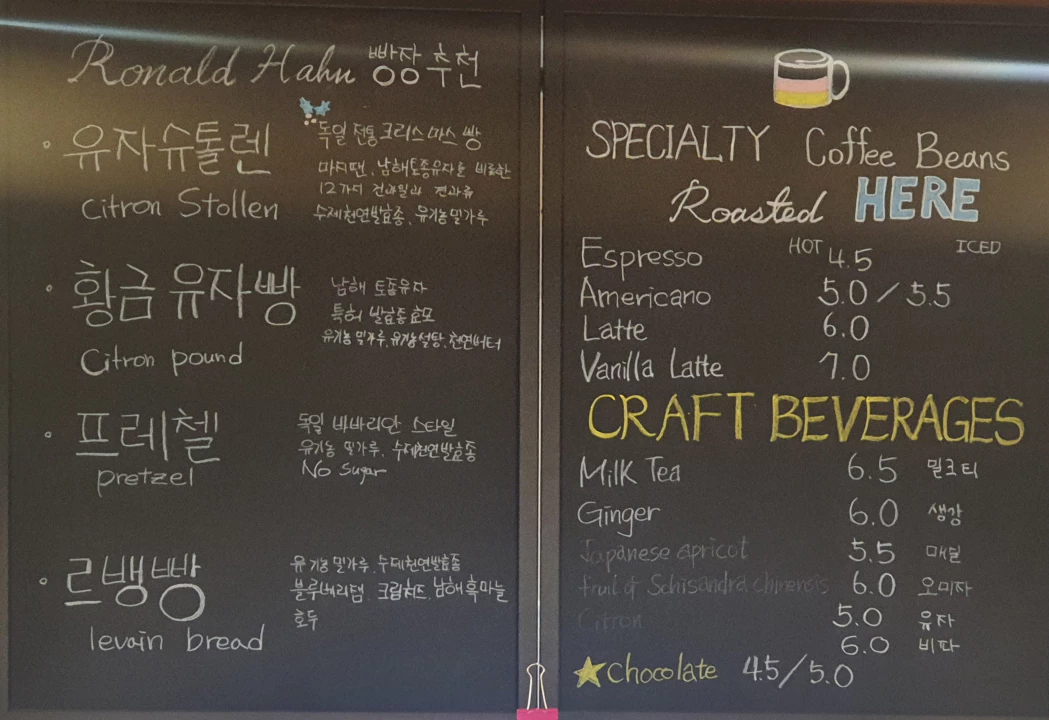 Ronald Hahn 빵장 추천
유자슈톨렌
Citron Stollen
독일 전통 크리스마스 빵
마지팬, 남해토종유자를 비롯한
12가지 건과일과 견과류
수제천연발효종, 유기농밀가루
황금 유자빵
Citron pound
남해 토종유자
특허 발효종효모
유기농 밀가루, 유기농설탕, 천연버터
프레첼
pretzel
독일 바바리안 스타일
유기농 밀가루, 수제천연발효종
No sugar
르뱅빵
levain bread
유기농밀가루, 수제천연발효종
블루베리잼, 크림치즈, 남해흑마늘
호두
SPECIALTY Coffee Beans
Roasted HERE
HOT ICED
Espresso 4.5
Americano 5.0 / 5.5
Latte 6.0
Vanilla Latte 7.0
CRAFT BEVERAGES
Milk Tea 6.5 밀크티
Ginger 6.0 생강
Japanese apricot 5.5 매실
fruit of Schisandra chinensis 6.0 오미자
Citron 5.0 유자
6.0 비파
chocolate 4.5/5.0